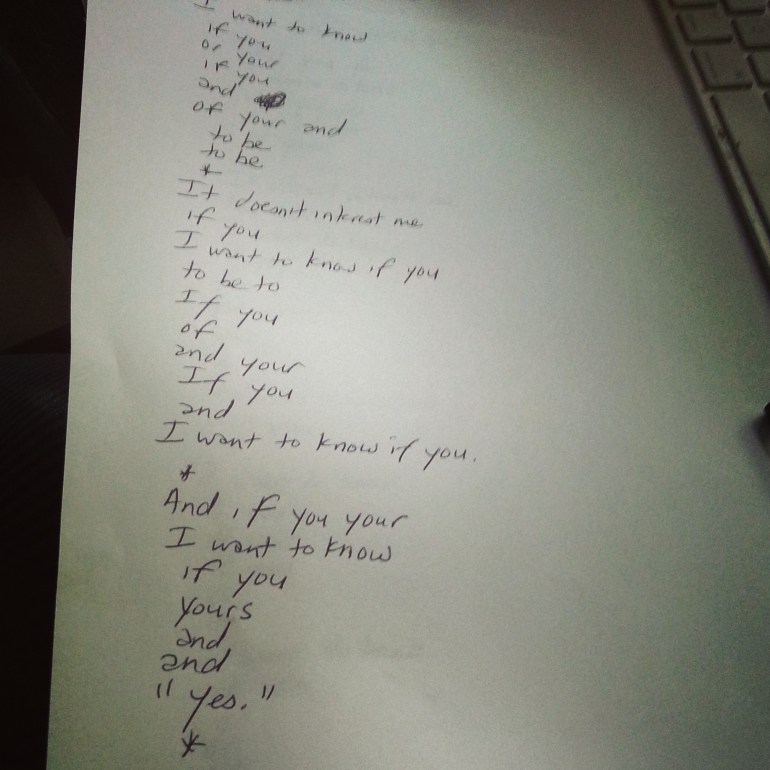 I want to know
if you
or your
if you
and
of your and
to be
to be
*
It doesn't interest me
if you
I want to know if you
to be to
If you
of
and your
If you
and
I want to know if you.
*
And if you your
I want to know
if you
yours
and
and
"Yes."
*